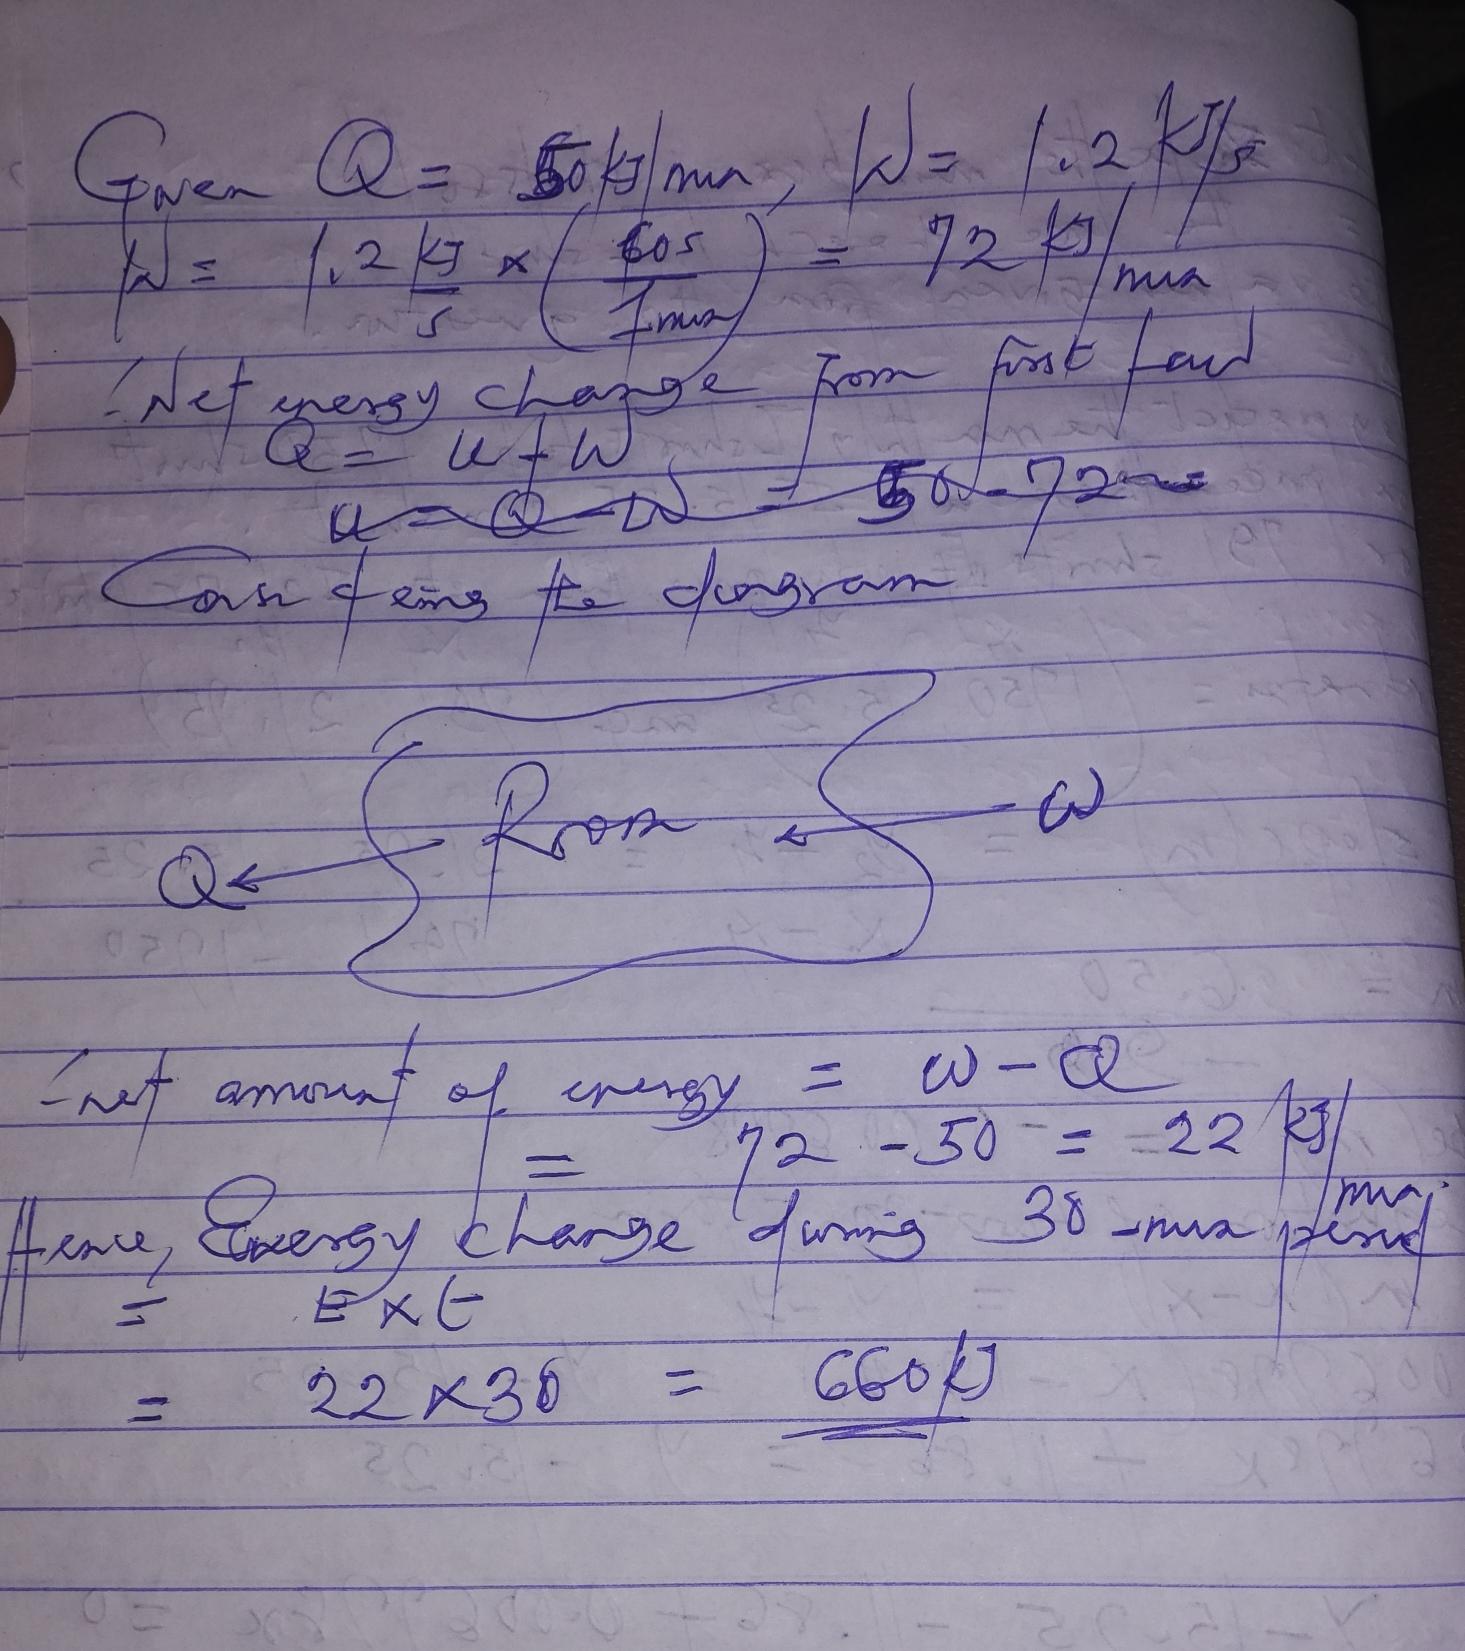 Given Q = 50 kJ/min, W = 1.2 kJ/s
W = 1.2 kJ/s × (60s/1min) = 72 kJ/min
∴ Net energy change from first law
Q = u + W
u = Q - W = 50 - 72 =
Considering the diagram
Room
W
Q
∴ net amount of energy = W - Q
= 72 - 50 = 22 kJ/min.
Hence, Energy change during 30-min period
= E × t
= 22 × 30 = 660 kJ